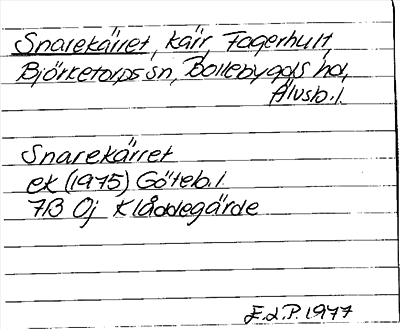 Snarekärret, kärr, Fagerhult,
Björketorps sn, Bollebygds hd,
Älvsb. l.
Snarekärret
ek (1975) Göteb. l
7B 0j Klåddegärde
E.d.P. 1977